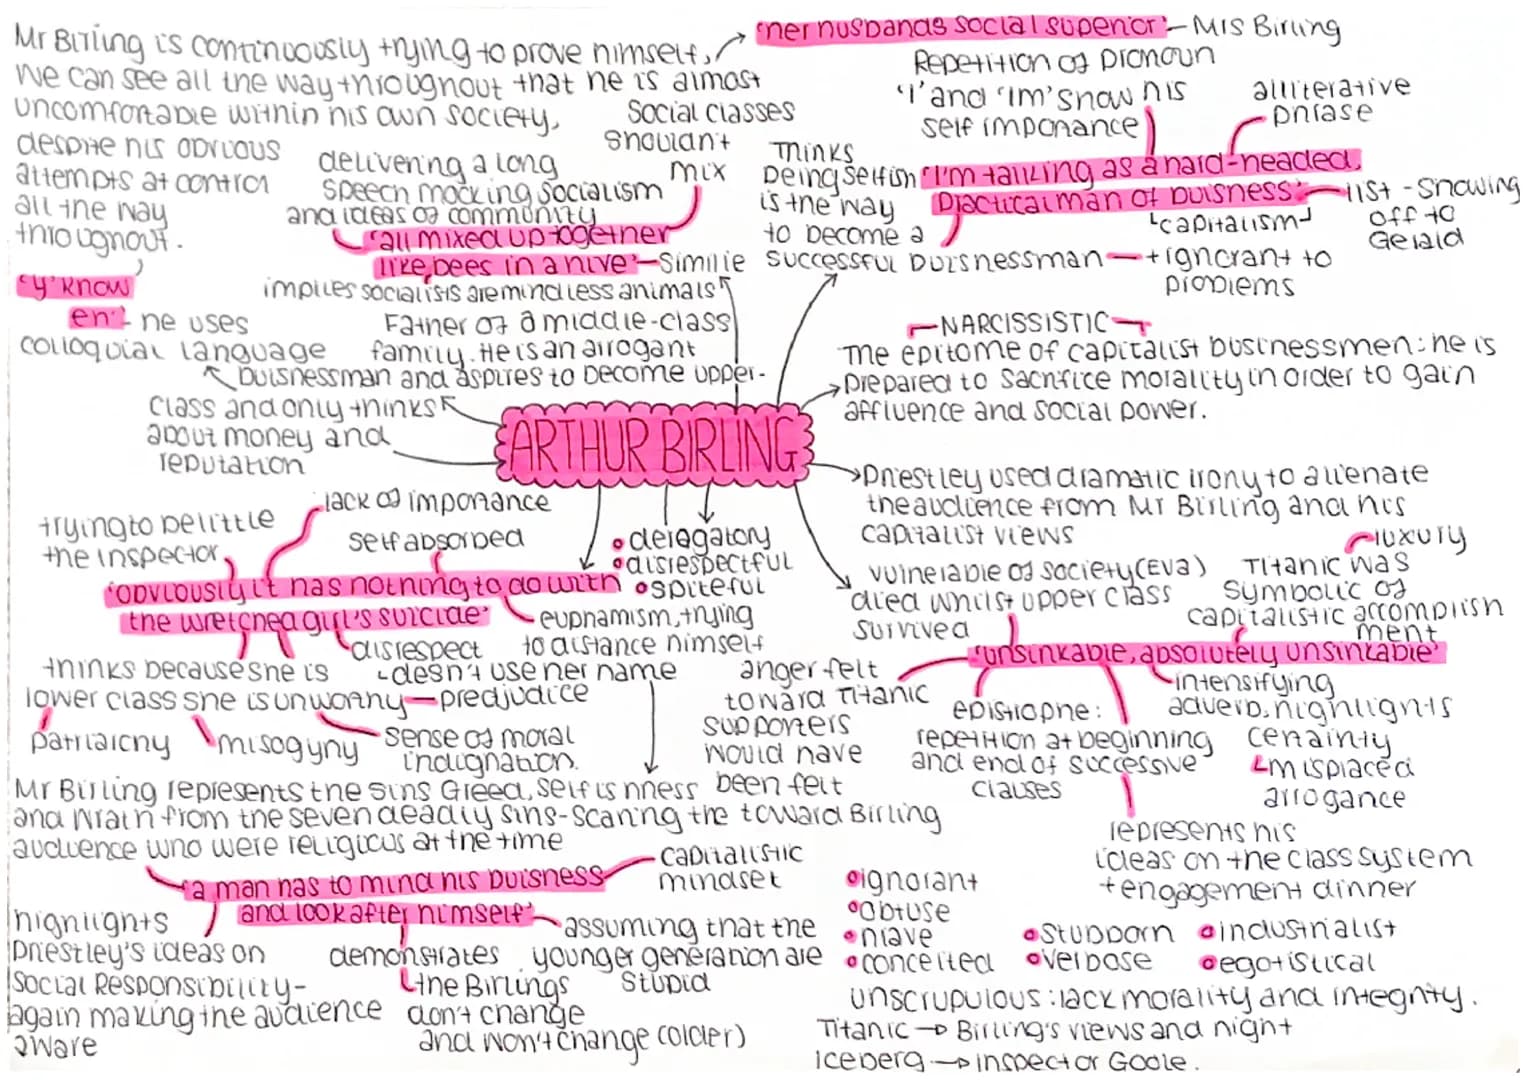 Mr Birling is continuously trying to prove himself,
We can see all the way throughout that he is almost
uncomfortable within his own society,
despite his obvious
attempts at control
all the way
throughout.
'y'know
eh'- he uses
colloquial language
'her husbands social superior' - Mrs Birling
Social classes
shouldn't
mix
delivering a long
speech mocking socialism
and ideas of community
'all mixed up together
like bees in a hive' - Similie
implies socialists are mindless animals
Repetition of pronoun
'I' and 'Im' show his
self importance
alliterative
phrase
Thinks
being selfish
is the way
to become a
successful buisnessman - + ignorant to
problems
'I'm talking as a hard-headed.
Practical man of buisness'
'capitalism'
list - showing
off to
Gerald
Father of a middle-class
family. He is an arrogant
buisnessman and aspires to become upper-
class and only thinks
about money and
reputation
NARCISSISTIC
The epitome of capitalist businessmen: he is
prepared to sacrifice morality in order to gain
affluence and social power.
ARTHUR BIRLING
Priestley used dramatic irony to alienate
the audience from Mr Birling and his
capitalist views
lack of importance
trying to belittle
the inspector
self absorbed
'obviously it has nothing to do with
the wretched girl's suicide'
• deragatory
• disrespectful
• spiteful
euphamism, trying
to distance himself
disrespect
doesn't use her name
thinks because she is
lower class she is unworthy - predjudice
patriarchy
misogyny
sense of moral
indignation.
vulnerable of society (EVA)
died whilst upper class
survived
luxury
Titanic was
symbolic of
capitalistic accomplish
ment
'unsinkable, absolutely unsinkable'
anger felt
toward Titanic
supporters
would have
been felt
toward Birling
epistrophe:
repetition at beginning
and end of successive
clauses
intensifying
adverb, highlights
certainty
misplaced
arrogance
represents his
ideas on the class system
+ engagement dinner
Mr Birling represents the sins Greed, selfishness
and Wrath from the seven deadly sins - Scaring the
audience who were religious at the time
'a man has to mind his buisness
and look after himself'
capitalistic
mindset
highlights
Priestley's ideas on
Social Responsibility -
again making the audience
aware
demonstrates
the Birlings
don't change
and won't change (older)
assuming that the
younger generation are
stupid
• ignorant
• obtuse
• niave
• conceited
• stubborn
• verbose
• industrialist
• egotistical
unscrupulous: lack morality and integrity.
Titanic → Birling's views and night
Iceberg → inspector Goole.